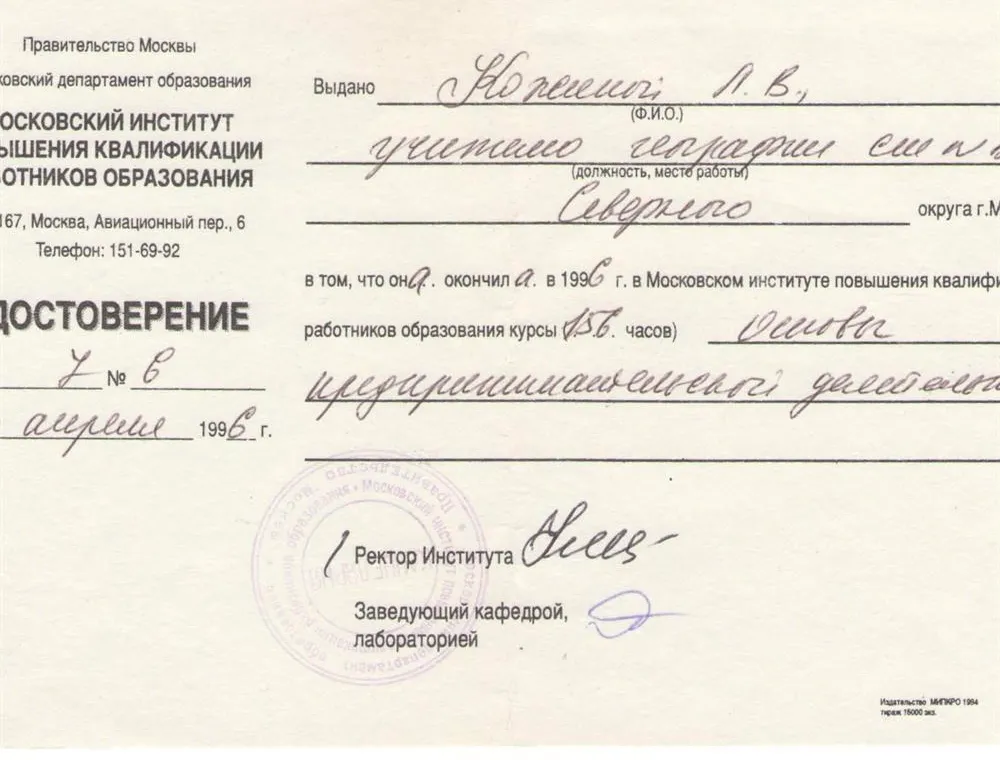 Правительство Москвы
ковский департамент образования
ОСКОВСКИЙ ИНСТИТУТ
ЫШЕНИЯ КВАЛИФИКАЦИИ
ОТНИКОВ ОБРАЗОВАНИЯ
167, Москва, Авиационный пер., 6
Телефон: 151-69-92
ДОСТОВЕРЕНИЕ
№ 6
апреля 1996 г.
Выдано Л. В.,
(Ф.И.О.)
учителю географии
(должность, место работы)
Северного округа г.М
в том, что она. окончила. в 1996 г. в Московском институте повышения квалифи
работников образования курсы (156. часов) Основы
предпринимательской деятельно
Ректор Института
Заведующий кафедрой,
лабораторией
Издательство МИПКРО 1994
тираж 15000 экз.